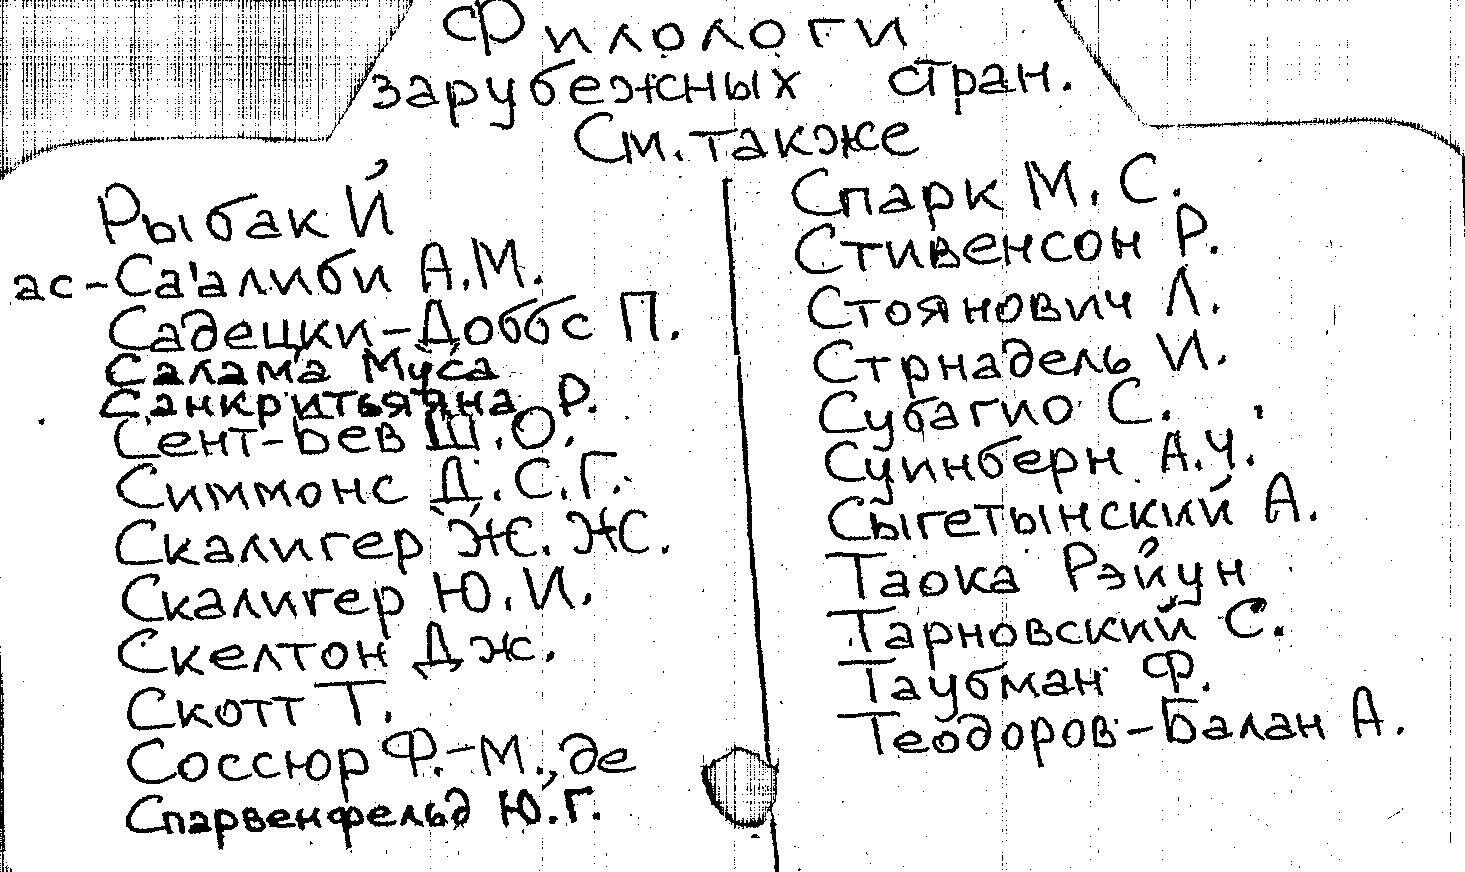 Филологи
зарубежных стран.
См. также
Рыбак Й
ас-Са'алиби А.М.
Садецки-Доббс П.
Салама Муса
Санкритьяяна Р.
Сент-Бев Ш.О.
Симмонс Д.С.Г.
Скалигер Ж.Ж.
Скалигер Ю.И.
Скелтон Дж.
Скотт Т.
Соссюр Ф.-М., де
Спарвенфельд Ю.Г.
Спарк М.С.
Стивенсон Р.
Стоянович Л.
Стрнадель И.
Субагио С.
Суинберн А.Ч.
Сыгетынский А.
Таока Рэйун
Тарновский С.
Таубман Ф.
Теодоров-Балан А.